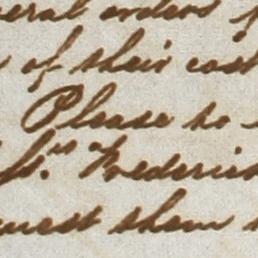 eral orders f
of their cost
Please to
Mess.rs Frederick
quest them